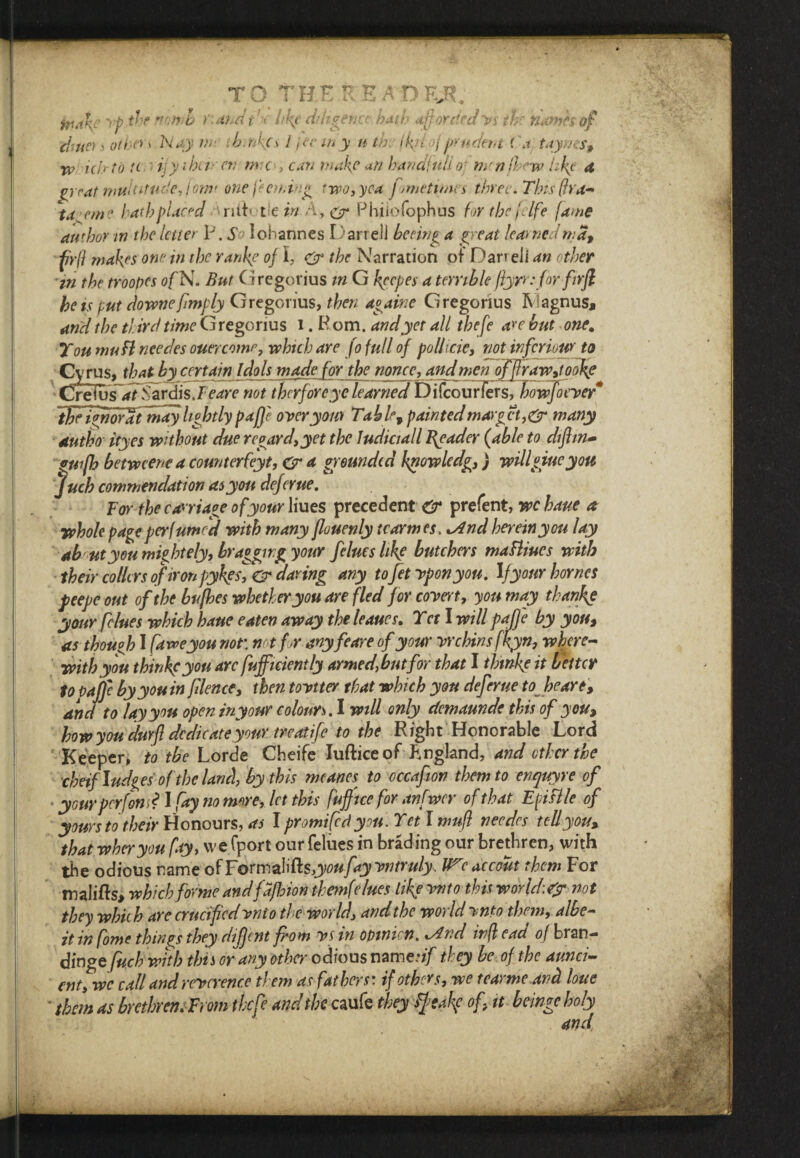 TO THE READER.
make vp the nomb r: and the like diligence hath afforded vs the names of
diuers others Nay me thinkes I see in y u the skil of prudent Ca taynes,
w ich to te ify their en mie, can make an handfull of men shew like a
great multitude, some one seeming two, yea sometimes three. This stra-
tageme hath placed Aristotle in A, & Philosophus for the selfe same
author in the letter P. So Iohannes Darrell beeing a great learned mā,
first makes one in the ranke of I, & the Narration of Darrell an other
in the troopes of N. But Gregorius in G keepes a terrible styrr: for first
he is put downe simply Gregorius, then againe Gregorius Magnus,
and the third time Gregorius 1. Rom. and yet all these are but one.
You must needes ouercome, which are so full of pollicie, not inferiour to
Cyrus, that by certain Idols made for the nonce, and men of straw, tooke
Cresus at Sardis. Feare not therfore ye learned Discoursers, howsoever
the ignorāt may lightly passe over your Table, painted margēt, & many
autho ityes without due regard, yet the Iudiciall Reader (able to distin-
guish betweene a counterfeyt, & a grounded knowledg,) will giue you
such commendation as you deserue.
For the carriage of your liues precedent & present, we haue a
whole page perfumed with many slouenly tearmes. And herein you lay
ab ut you mightely, bragging your selues like butchers mastiues with
their collers of iron pykes, & daring any to set vpon you. If your hornes
peepe out of the bushes whether you are fled for covert, you may thanke
your selues which haue eaten away the leaues. Yet I will passe by you,
as though I sawe you not: not for any feare of your vrchins skyn, where-
with you thinke you are sufficiently armed, but for that I thinke it better
to passe by you in silence, then to vtter that which you deserue to heare,
and to lay you open in your colours. I will only demaunde this of you,
how you durst dedicate your treatise to the Right Honorable Lord
Keeper, to the Lorde Cheife Iustice of England, and other the
cheif Iudges of the land, by this meanes to occasion them to enquyre of
your persons? I say no more, let this suffice for answer of that Epistle of
yours to their Honours, as I promised you. Yet I must needes tell you,
that wher you say, we sport our selues in brāding our brethren, with
the odious name of Formalists, you say vntruly. We accoūt them For
malists, which forme and fashion themselues like vnto this world: & not
they which are crucified vnto the world, and the world vnto them, albe-
it in some things they dissent from vs in opinion. And instead of bran-
dinge such with this or any other odious name: if they be of the aunci-
ent, we call and reverence them as fathers: if others, we tearme and loue
them as brethren. From these and the cause they speake of, it beinge holy
and